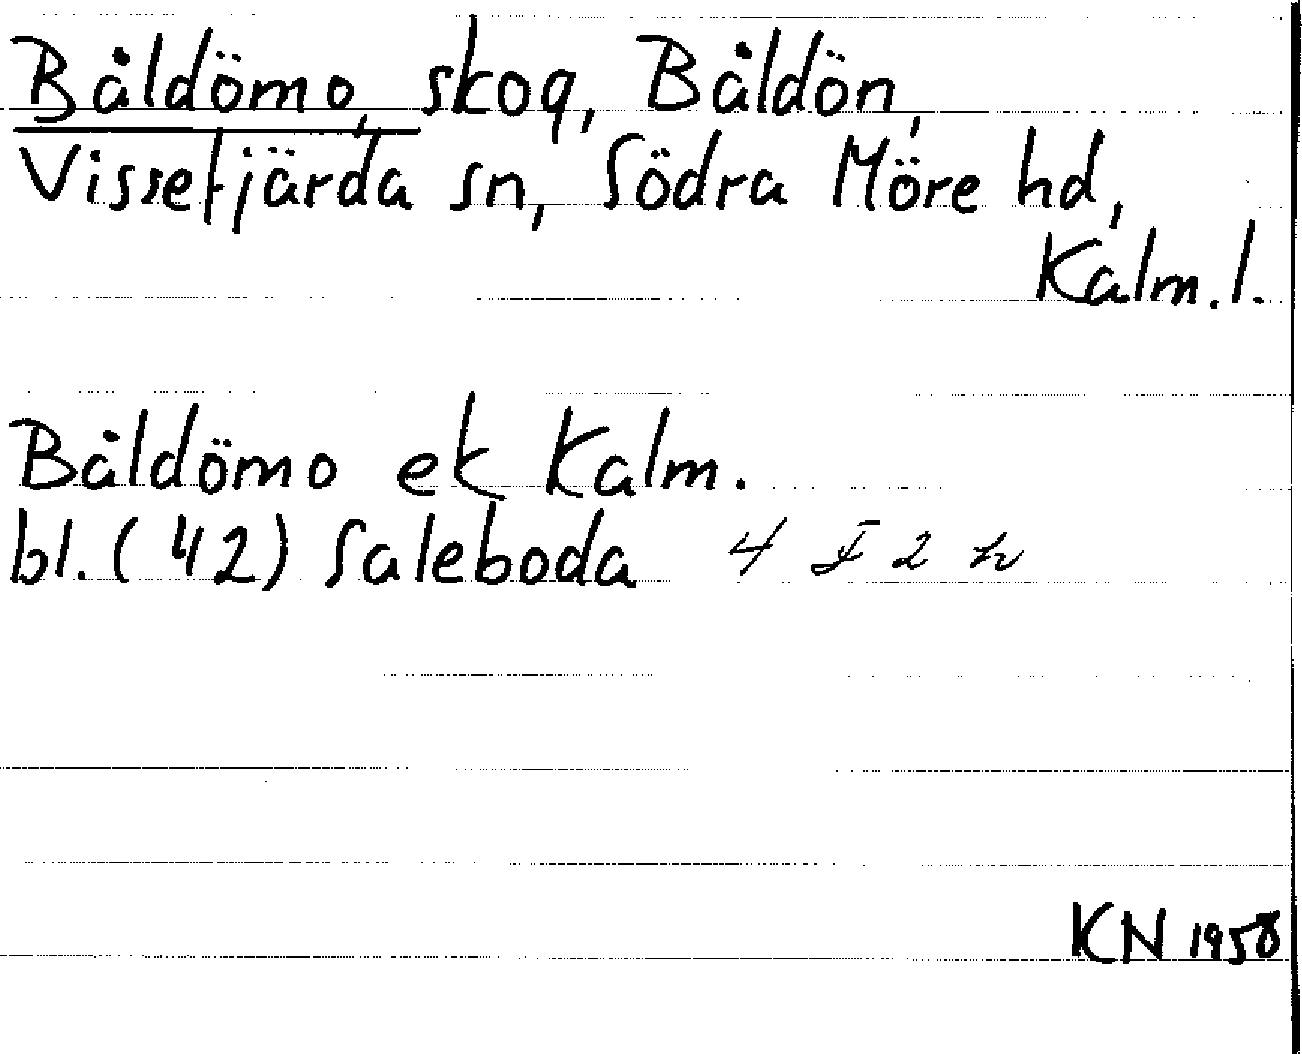 Båldömo, skog, Båldön,
Vissefjärda sn, Södra Möre hd,
Kalm. l.
Båldömo ek Kalm.
bl. (42) Saleboda 4 F 2 h
KN 1958